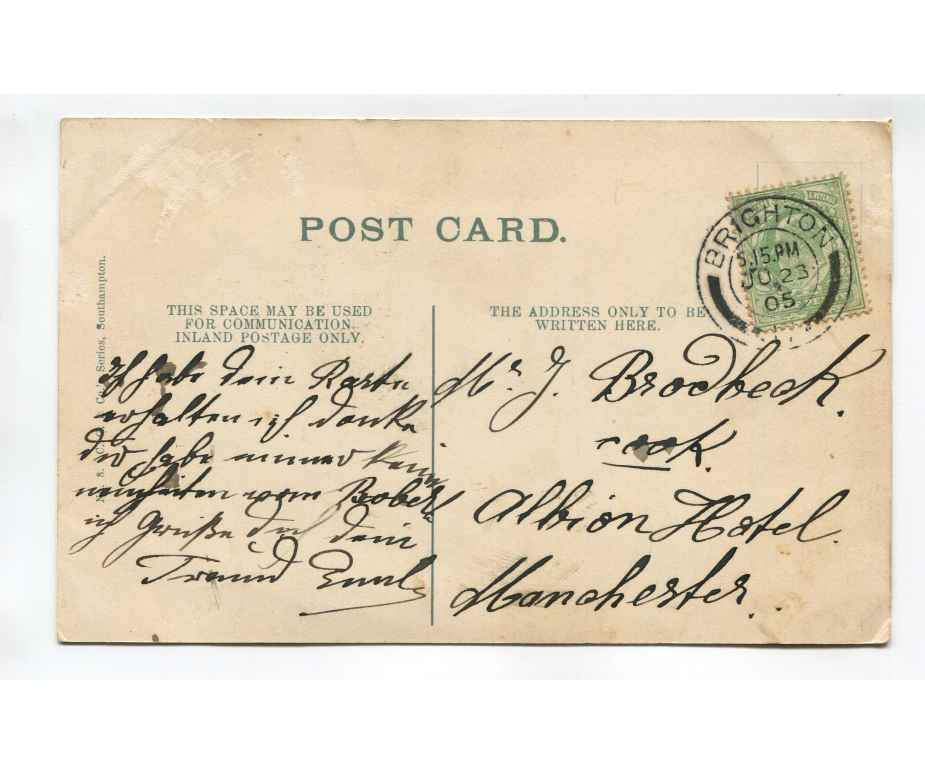 POST CARD.
BRIGHTON
5.15.PM
JU 23
05
THIS SPACE MAY BE USED
FOR COMMUNICATION.
INLAND POSTAGE ONLY.
THE ADDRESS ONLY TO BE
WRITTEN HERE.
Series, Southampton.
Ich habe dein Karte
erhalten ich danke
dir habe immer kein
neuheiten vom
ich Grüße dich dein
Freund Emil
Mr. J. Brodbeck.
cook.
Albion Hotel.
Manchester.